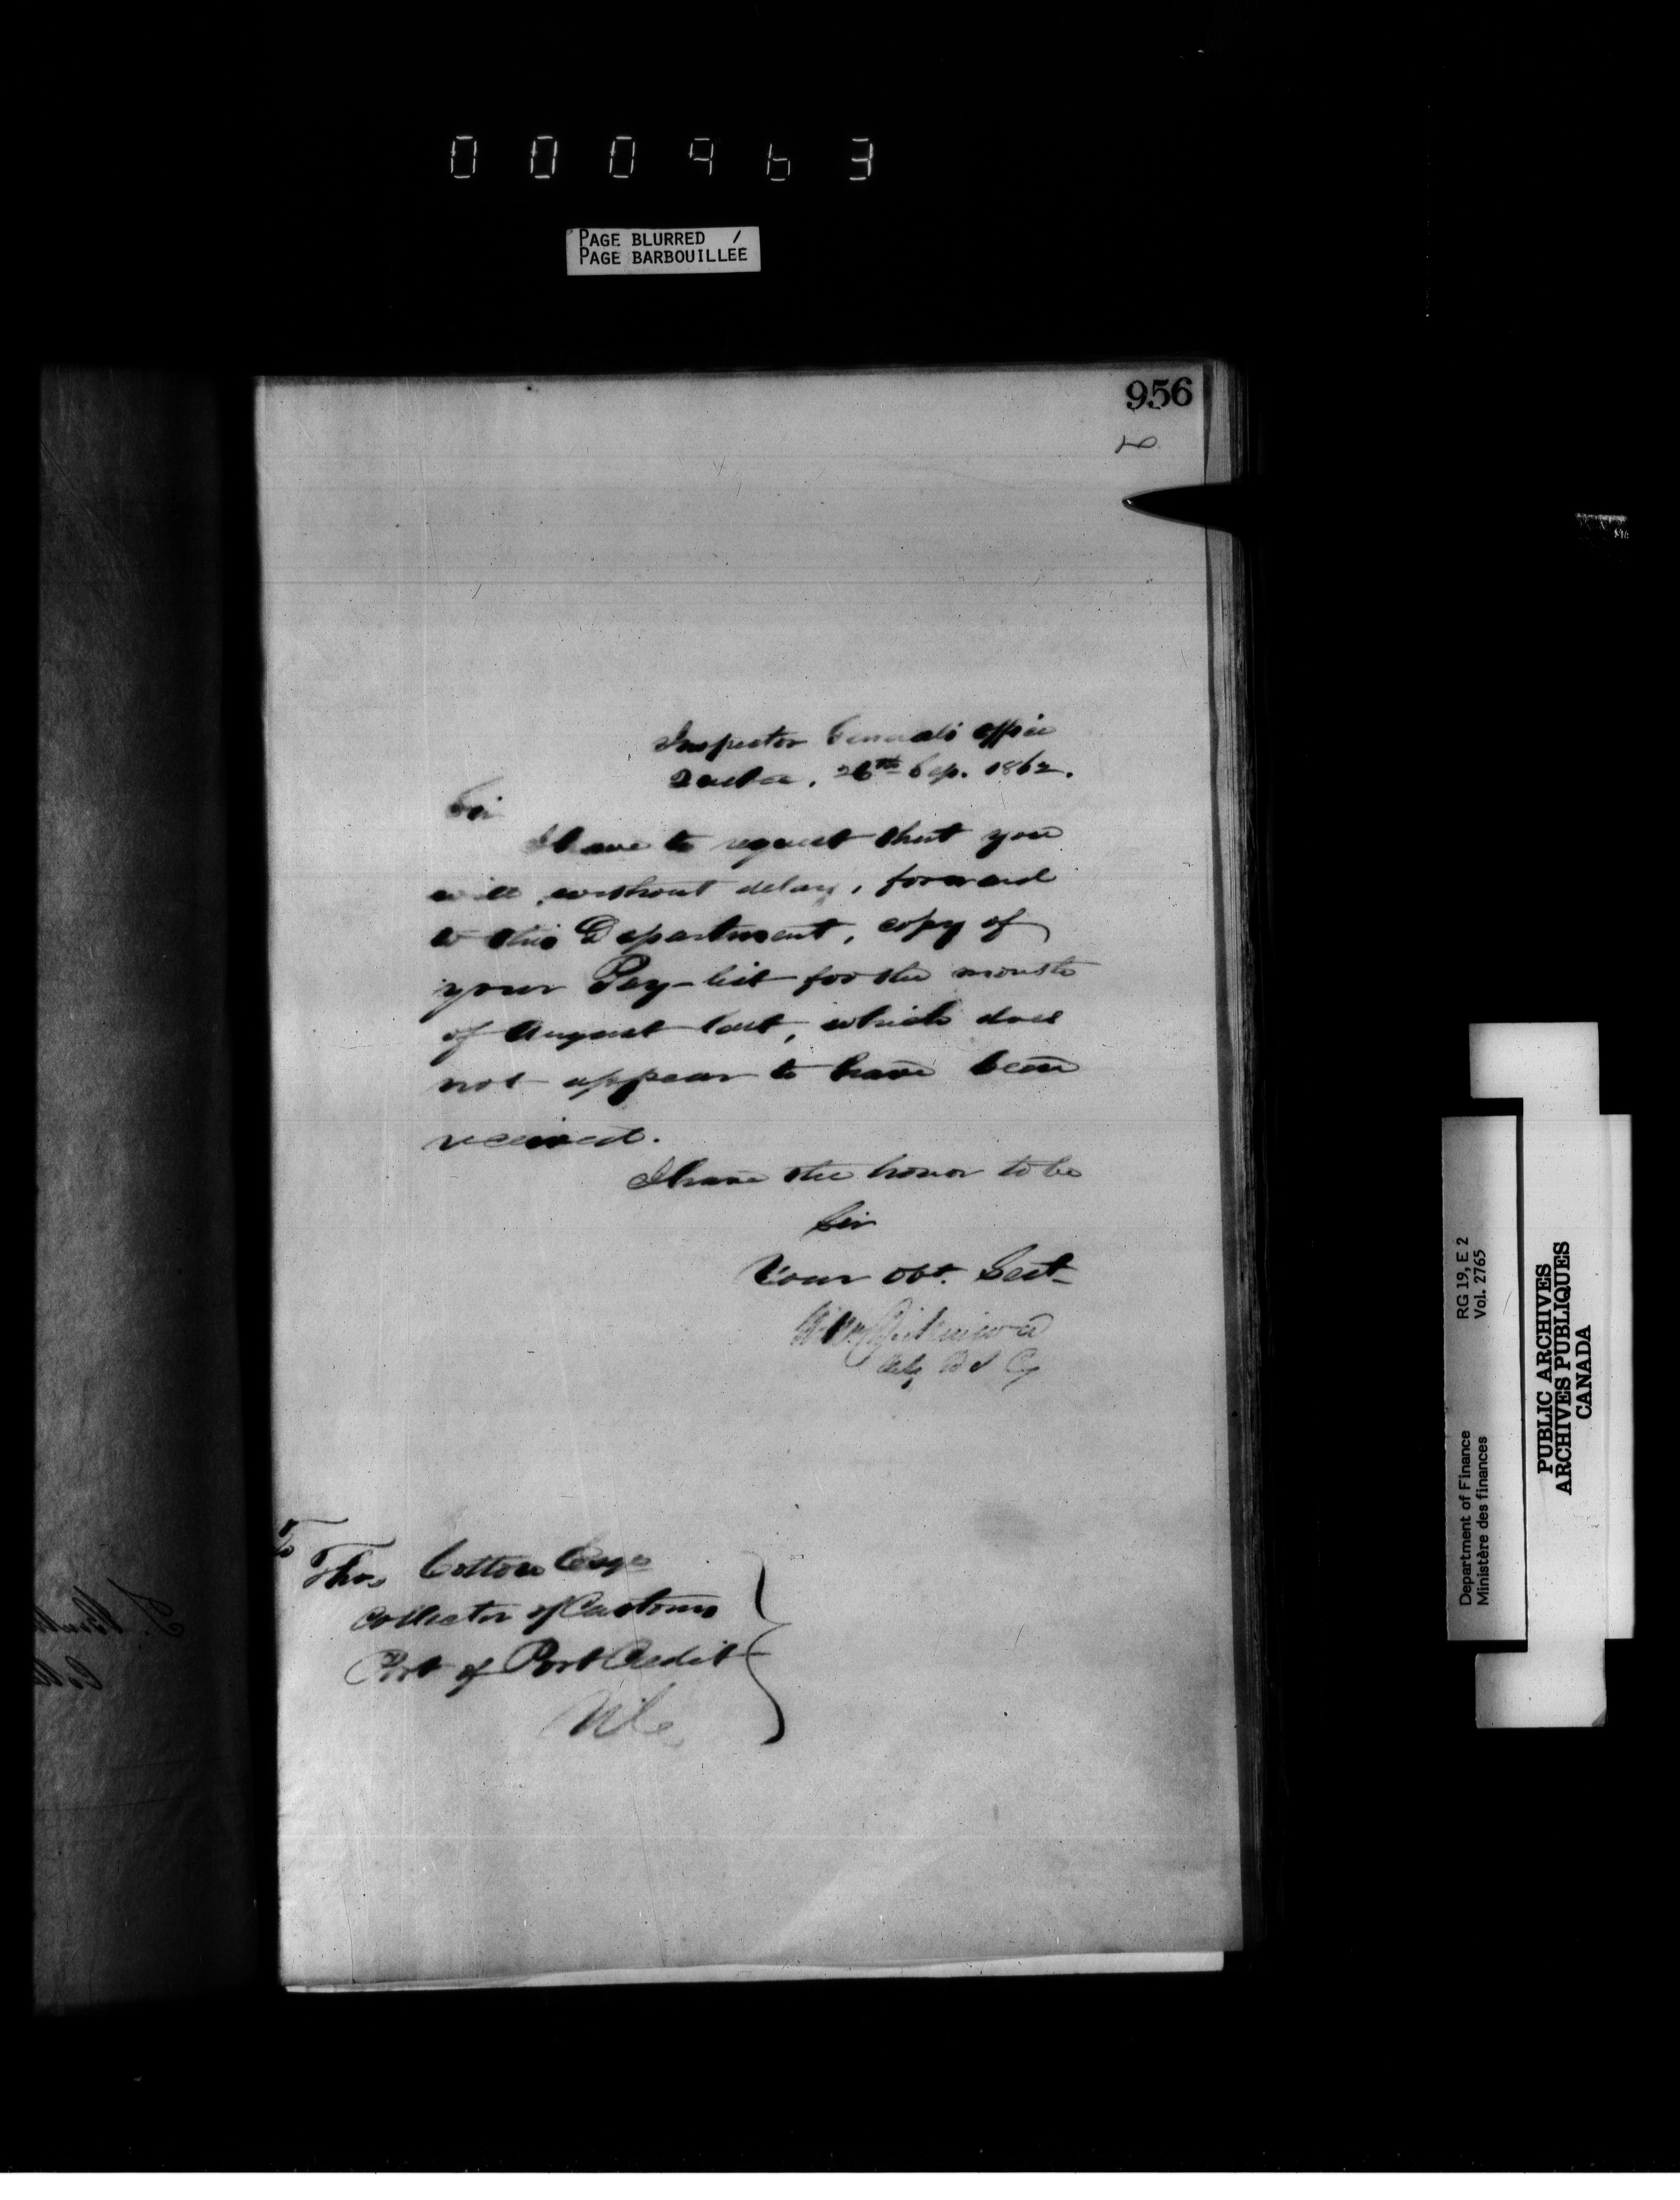 000963
PAGE BLURRED /
PAGE BARBOUILLEE
956
Inspector Generals Office
Quebec, 26th Sep. 1862.
Sir
I have to request that you
will, without delay, forward
to this Department, copy of
your Pay-list for the month
of August last, which does
not appear to have been
received.
I have the honor to be
Sir
Your Obt. Sert
Wm Dickinson
Actg D I G
To
Thos Cotton Esqr
Collector of Customs
Port of Port Credit
Department of Finance RG 19, E 2
Ministère des finances Vol. 2765
PUBLIC ARCHIVES
ARCHIVES PUBLIQUES
CANADA